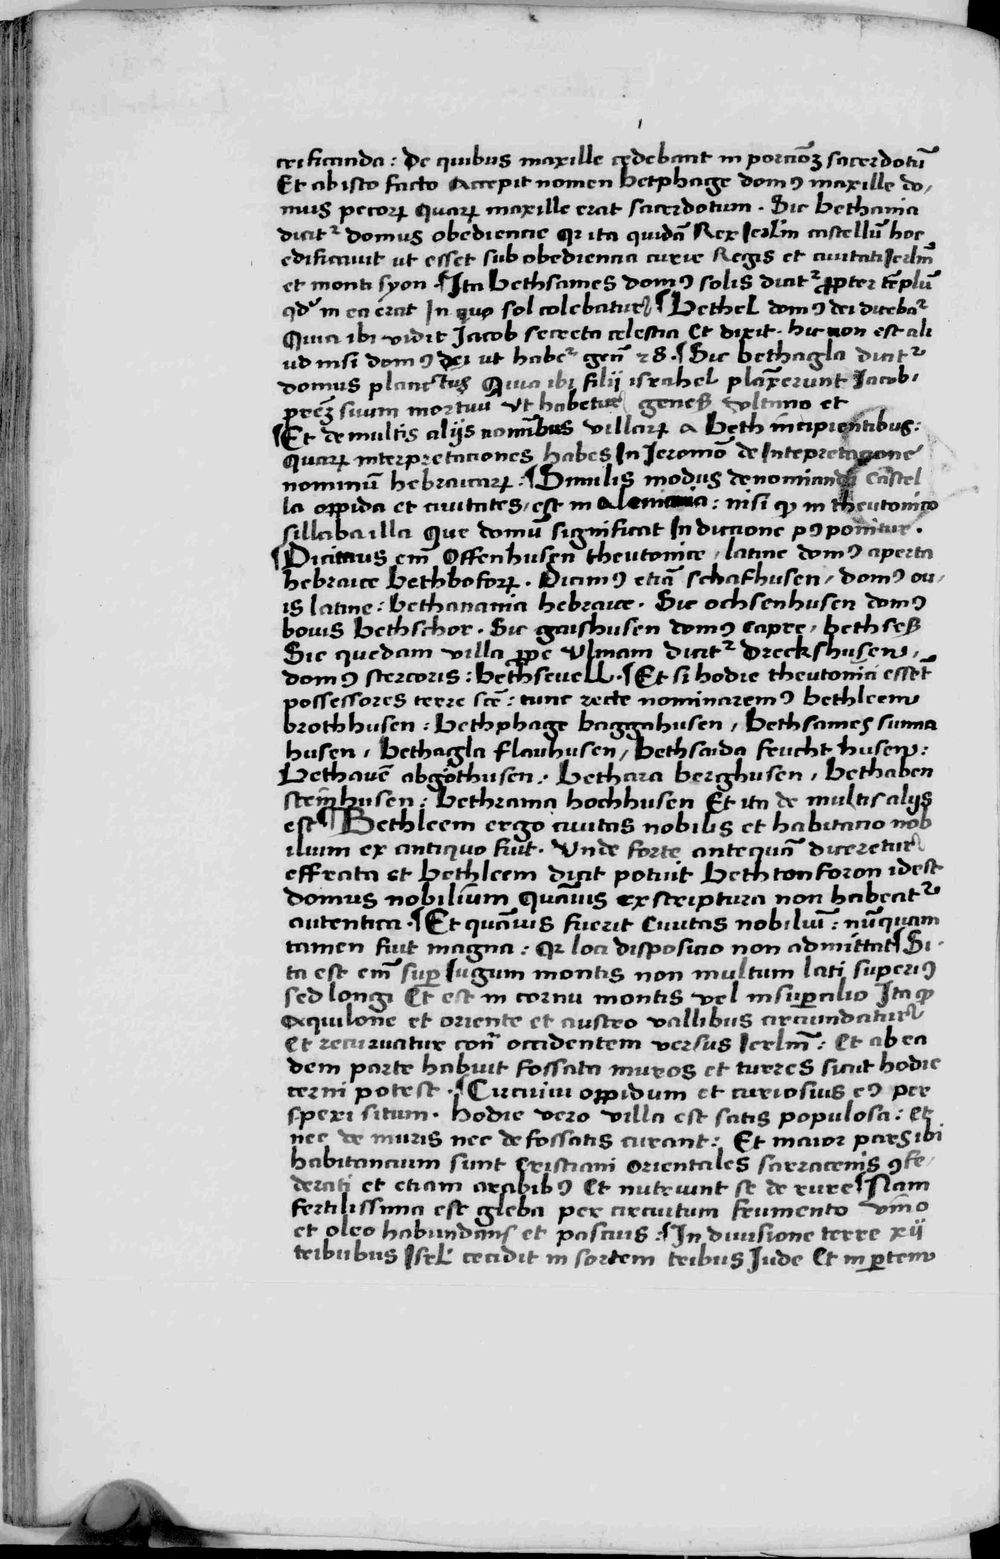 crificanda : De quibus maxille cedebant in porcioꝫ sacerdotū
Et ab isto facto Accepit nomen betphage domꝰ maxille do,
mus pecoꝝ quaꝝ maxille erāt sacerdotum . Sic bethania
dicitᷣ domus obediencie qꝛ ita quidā Rex Ierlm̄ castellū hoc
edificauit ut esset sub obediencia curie Regis et ciuitati Ierlm̄
et monti syon . ¶ Ita bethsames domꝰ solis dicitᷣ ꝓpter tēplū
qd̛ in ea erat In quo sol colebatur ¶ Bethel domꝰ dei dicebaᷣ
Quia ibi vidit Jacob secreta celestia Et dixit . hic non est ali
ud nisi domꝰ dei ut habeᷣ gen̄ 28 . ¶ Sic bethagla dicitᷣ
domus planctus Quia ibi filij israhel planxerunt Jacob ,
prēꝫ suum mortuū vt habetur genes̄ vltimo et
¶ Et de multis alijs nominibus villaꝝ a beth incipientibus :
Quaꝝ interpretationes habes In Jeromo de Intepretacione
nominū hebraicaꝝ : ¶ Similis modus denominandi Castel
la oppida et ciuitates , est in alemania : nisi ꝙ in theutonico
sillaba illa Que domū significat In diccione pꝰponitur .
¶ Dicimus em̄ Offenhusen theutonice , latine domꝰ aperta
hebraice bethboforꝝ . Dicimꝰ etiā schafhusen , domꝰ ou ,
is latine : bethanania hebraice . Sic ochsenhusen domꝰ
bouis bethschor . Sic gaishusen domꝰ capre , bethseß
Sic quedam villa ꝓpe Vlmam dicitᷣ Dreckshusen ,
domꝰ stercoris : bethsevell . ¶ Et si hodie theutonici essēt
possessores terre scē : tunc recte nominaremꝰ bethleem
brothhusen : bethphage baggahusen , bethsames sunna
husen , bethagla Flauhusen , bethsaida feucht husen :
bethauē abgöthusen : bethara berghusen , bethaben
steinhusen : bethrama hochhusen Et ita de multis alijs
est ¶ Bethleem ergo ciuitas nobilis et habitacio nob
ilium ex antiquo fuit . Vnde forte antequā diceretur
effrata et bethleem dici potuit beth tonforon idest
domus nobilium quāuis ex scriptura non habeatᷣ
autentica . ¶ Et quāuis fuerit Ciuitas nobiliū : nūquam
tamen fuit magna : qꝛ loci disposicio non admittat ¶ Si .
ta est em̄ suꝑ Iugum montis non multum lati superiꝰ
sed longi Et est in cornu montis vel in suꝑcilio Ita ꝙ
Aquilone et oriente et austro vallibus circumdatur
Et recuruatur con̄ occidentem versus Ierlm̄ : Et ab ea
dem parte habuit fossata muros et turres sicut hodie
cerni potest . ¶ Circuiui oppidum et curiosius eꝰ per
spexi situm . hodie vero villa est satis populosa : Et
nec de muris nec de fossatis curant : Et maior pars ibi
habitancium sunt Cristiani orientales sarracenis ꝯfe ,
derati et etiam arabibꝰ Et nutriunt se de rure ¶ Nam
fertilissima est gleba per circuitum frumento vino
et oleo habundans et pascuis : ¶ In diuisione terre xij
tribubus Isrl̄ cecidit in sortem tribus Jude Et in ꝑtem